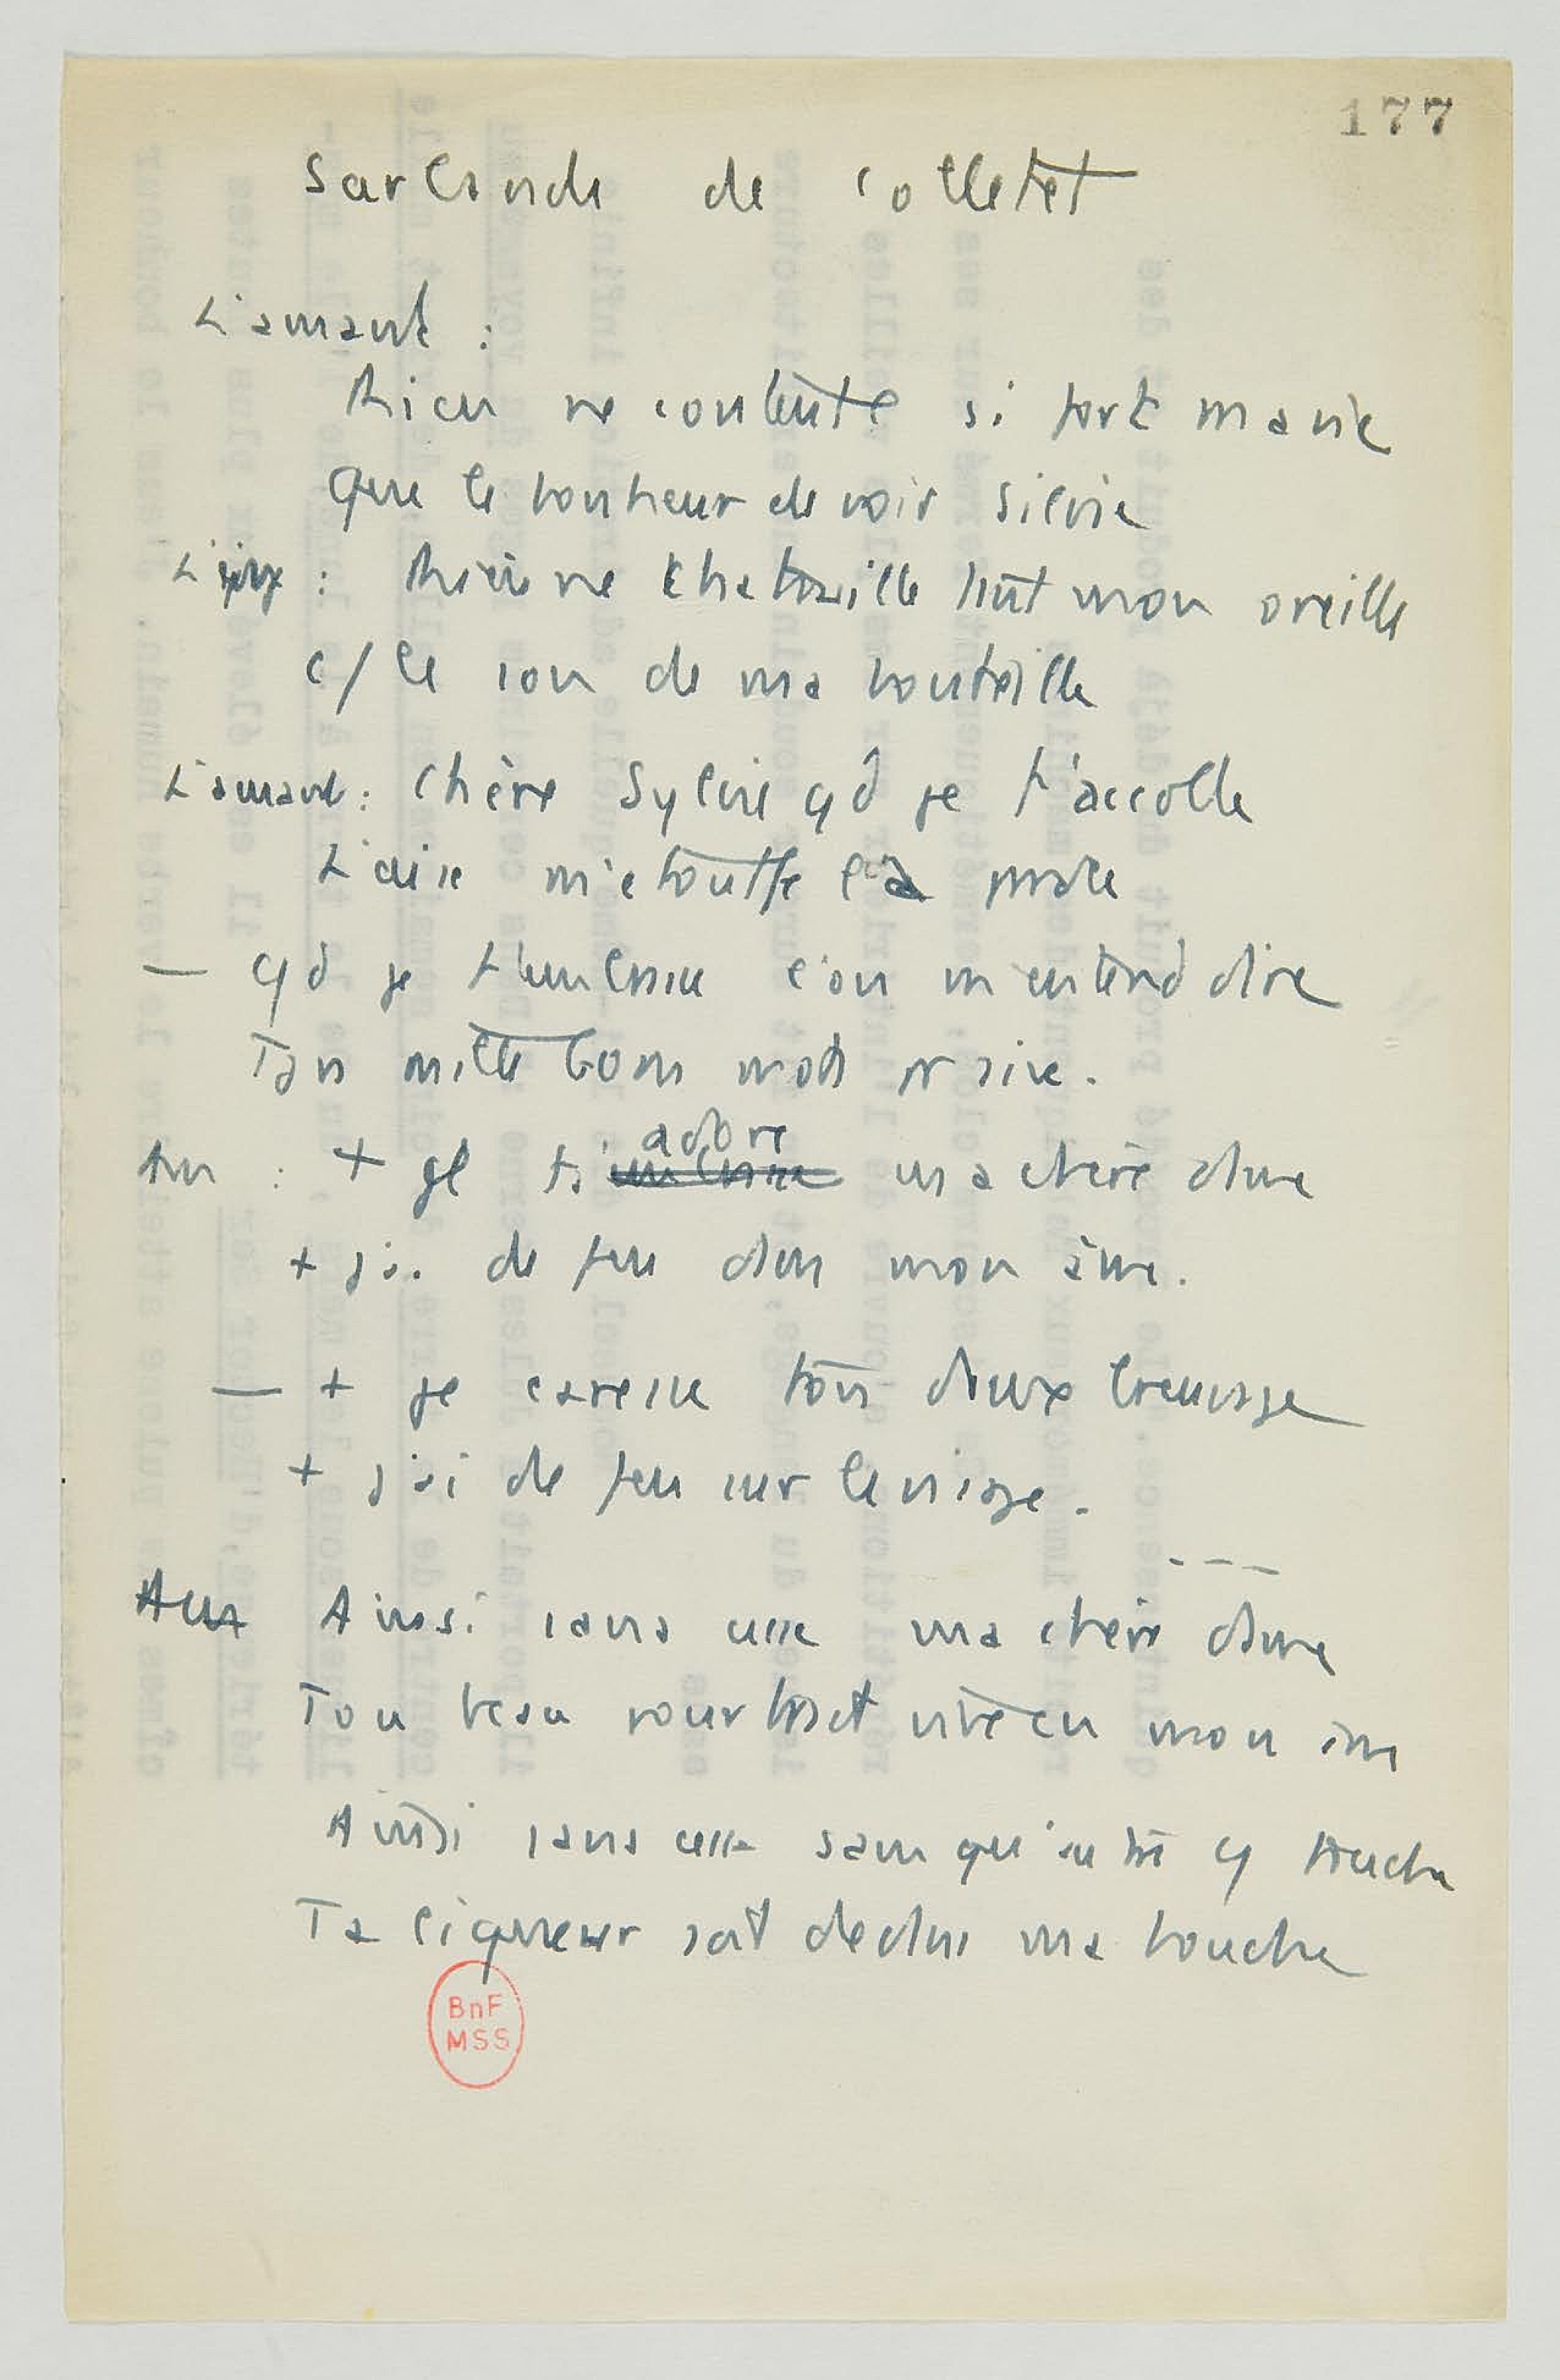 177
Sarlinde de Colletet
L'amant :
Rien ne contente si fort ma vie
Que le bonheur de voir Silvie
L'ivr : Rien ne chatouille tant mon oreille
c/ le son de ma bouteille
L'amant : Chère Sylvie qd je t'accolle
L'aise m'etouffe la parole
— qd je t'embrasse l'on m'entend dire
Tous mille bons mots pr rire.
Am : + je t'adore ma chère dame
+ j'ai de feu dans mon âme.
— + je caresse ton doux breuvage
+ j'ai de feu sur le visage.
---
Am Ainsi sans cesse ma chère dame
Ton beau pourtrait vive en mon âme
Ainsi sans cesse sans qu'autre y touche
Ta liqueur soit dedans ma bouche
BnF
MSS